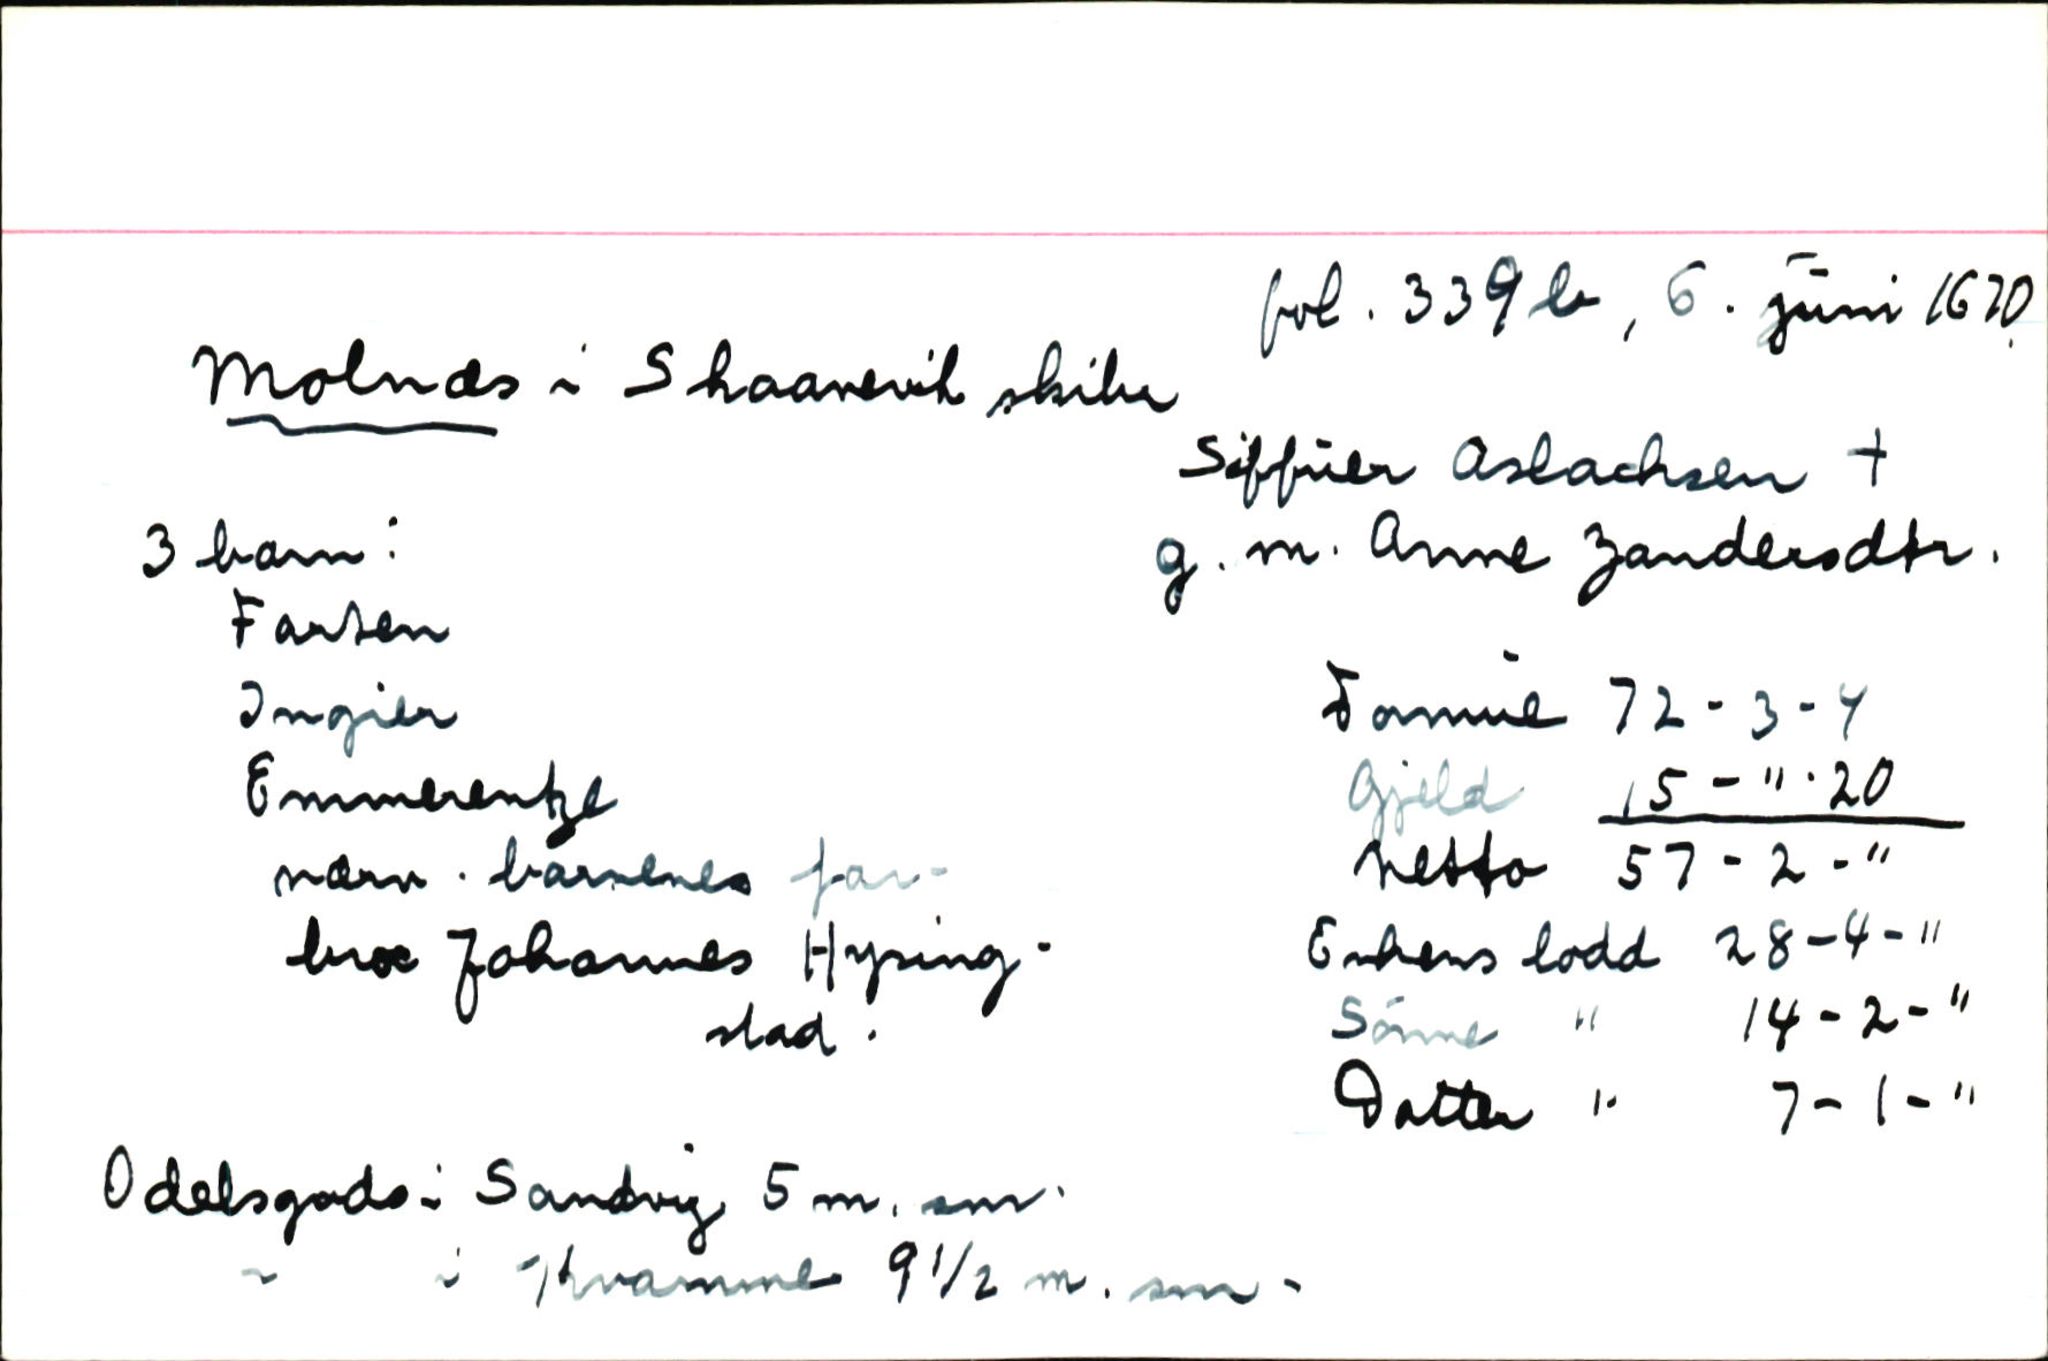 fol. 339 b, 6. juni 1670.
Molnæs i Skaanevik skibr
Siffuer Aslachsen +
g. m. Anne Zandersdtr.
3 barn:
Farten
Ingier
Emmerentze
nærv. barnenes far-
bror Johannes Hysing-
stad.
Formue 72-3-4
Gjeld 15-"-20
Netto 57-2-"
Enkens lodd 28-4-"
Sønne " 14-2-"
Datter " 7-1-"
Odelsgods i Sandvig 5 m. sm.
" i Kvamme 9 1/2 m. sm.